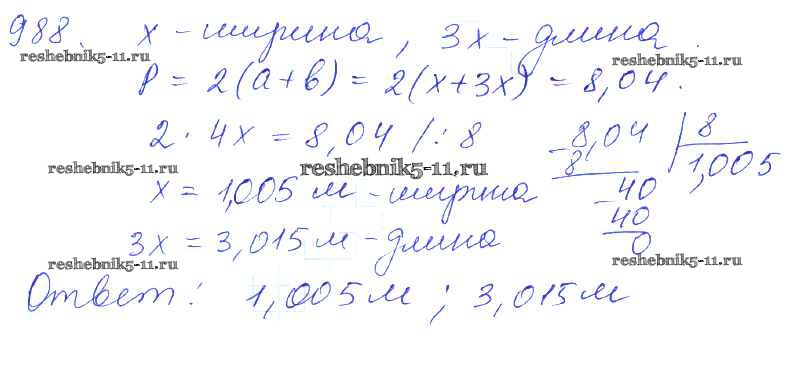 988. х - ширина, 3х - длина.
reshebnik5-11.ru reshebnik5-11.ru
P = 2(a+b) = 2(x+3x) = 8,04.
2 · 4x = 8,04 /: 8
reshebnik5-11.ru reshebnik5-11.ru
x = 1,005 м - ширина
3x = 3,015 м - длина
reshebnik5-11.ru reshebnik5-11.ru
Ответ: 1,005 м; 3,015 м
- 8,04 | 8
8 1,005
- 40
40
0